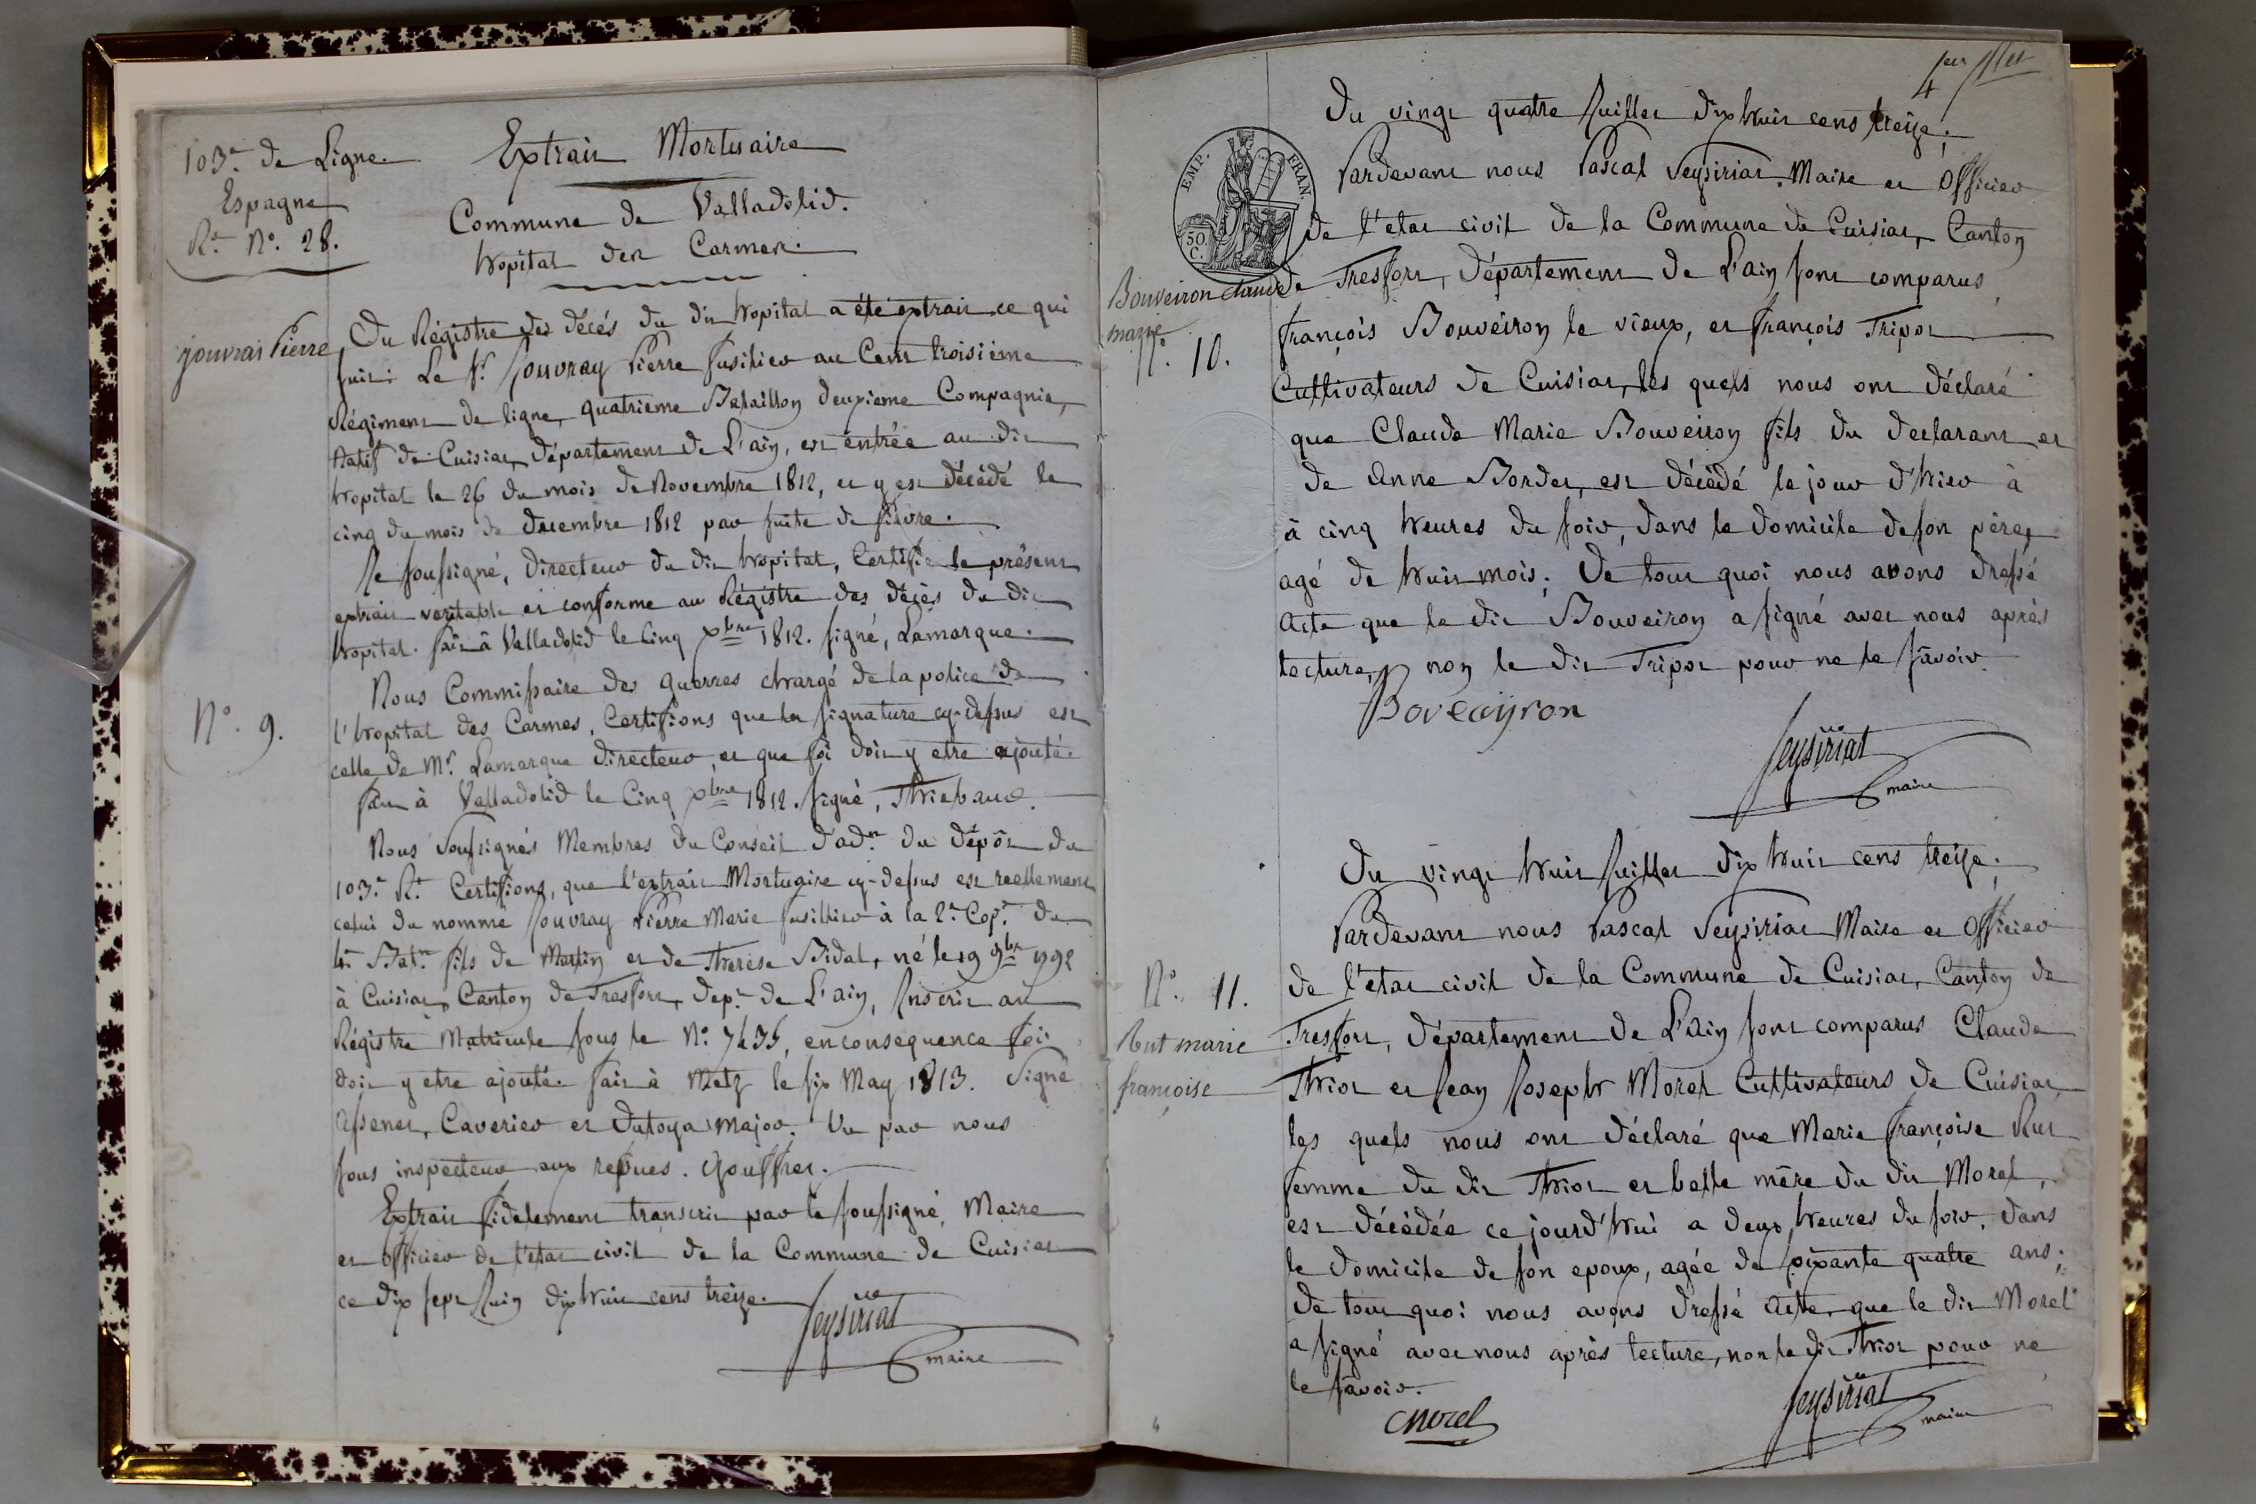 103e. de Ligne.
Espagne
Rt. No. 28.
Extrait Mortuaire
Commune de Valladolid.
hopital des Carmes.
jouvrai Pierre
Du Régistre des décés du dit hopital a été extrait ce qui
suit: Le Sr. Jouvray Pierre fusilier au Cent troisième
Régiment de ligne, quatrieme Bataillon deuxieme Compagnie,
Natif de Cuisiat, département de L'ain, est entrée au dit
hopital le 26 du mois de Novembre 1812, et y est décédé le
cinq du mois de decembre 1812 par suite de fièvre.
Je soussigné, directeur du dit hopital, Certifie le présent
extrait veritable et conforme au Régistre des décès du dit
hopital. fait à Valladolid le Cinq Xbre 1812. signé, Lamarque.
Nous Commissaire des guerres chargé de la police de
No. 9.
l'hopital des Carmes, Certifions que la signature cy-dessus est
celle de Mr. Lamarque directeur, et que foi doit y etre ajouté.
fait à Valladolid le Cinq Xbre 1812. signé, Thiebaud.
Nous Soussignés Membres du Conseil d'adn. du dépôt du
103e. Rt. Certifions, que l'extrait Mortuaire cy-dessus est reellement
celui du nommé Jouvray Pierre Marie fusillier à la 2e. Cope. du
4e. Batn. fils de Martin et de Therese Bidal, né le 19 9bre 1792
à Cuisiat, Canton de Treffort, dept. de L'ain, Inscrit au
Régistre Matricule sous le No. 7435, en consequence foi
doit y etre ajouté. fait à Metz le six May 1813. Signé
Assenet, Caverier et Dutoya major. Vu par nous
sous inspecteur aux revues. Gouffret.
Extrait fidelement transcrit par le soussigné, Maire
et officier de l'etat civil de la Commune de Cuisiat
ce dix sept Juin dix huit cens treize.
Seysiriat
maire
4er
Du vingt quatre Juillet dix huit cens treize;
Pardevant nous Pascal Seysiriat, Maire et Officier
de l'etat civil de la Commune de Cuisiat, Canton
EMP. FRAN.
50.
C.
de Treffort, Département de L'ain sont comparus
Bouveiron claude
marie
No. 10.
françois Bouveiron le vieux, et françois Tripoz
Cultivateurs de Cuisiat, les quels nous ont déclaré
que Claude Marie Bouveiron fils du declarant et
de Anne Bordet, est décédé le jour d'hier à
à cinq heures du soir, dans le domicile de son père,
agé de huit mois; De tout quoi nous avons dressé
Acte que le dit Bouveiron a signé avec nous après
lecture, non le dit Tripoz pour ne le savoir.
Boveayron
Seysiriat
maire
Du vingt huit Juillet dix huit cens treize;
Pardevant nous Pascal Seysiriat Maire et Officier
No. 11.
de l'etat civil de la Commune de Cuisiat, Canton de
Rut marie
françoise
Treffort, département de L'Ain sont comparus Claude
Thioz et Jean Joseph Morel Cultivateurs de Cuisiat
les quels nous ont déclaré que Marie françoise Rut
femme du dit Thioz et belle mère du dit Morel,
est décédée ce jourd'hui a deux heures du soir, dans
le domicile de son epoux, agée de soixante quatre ans;
de tout quoi nous avons dressé Acte, que le dit Morel
a signé avec nous après lecture, non le dit Thioz pour ne
le savoir.
Morel
Seysiriat
maire